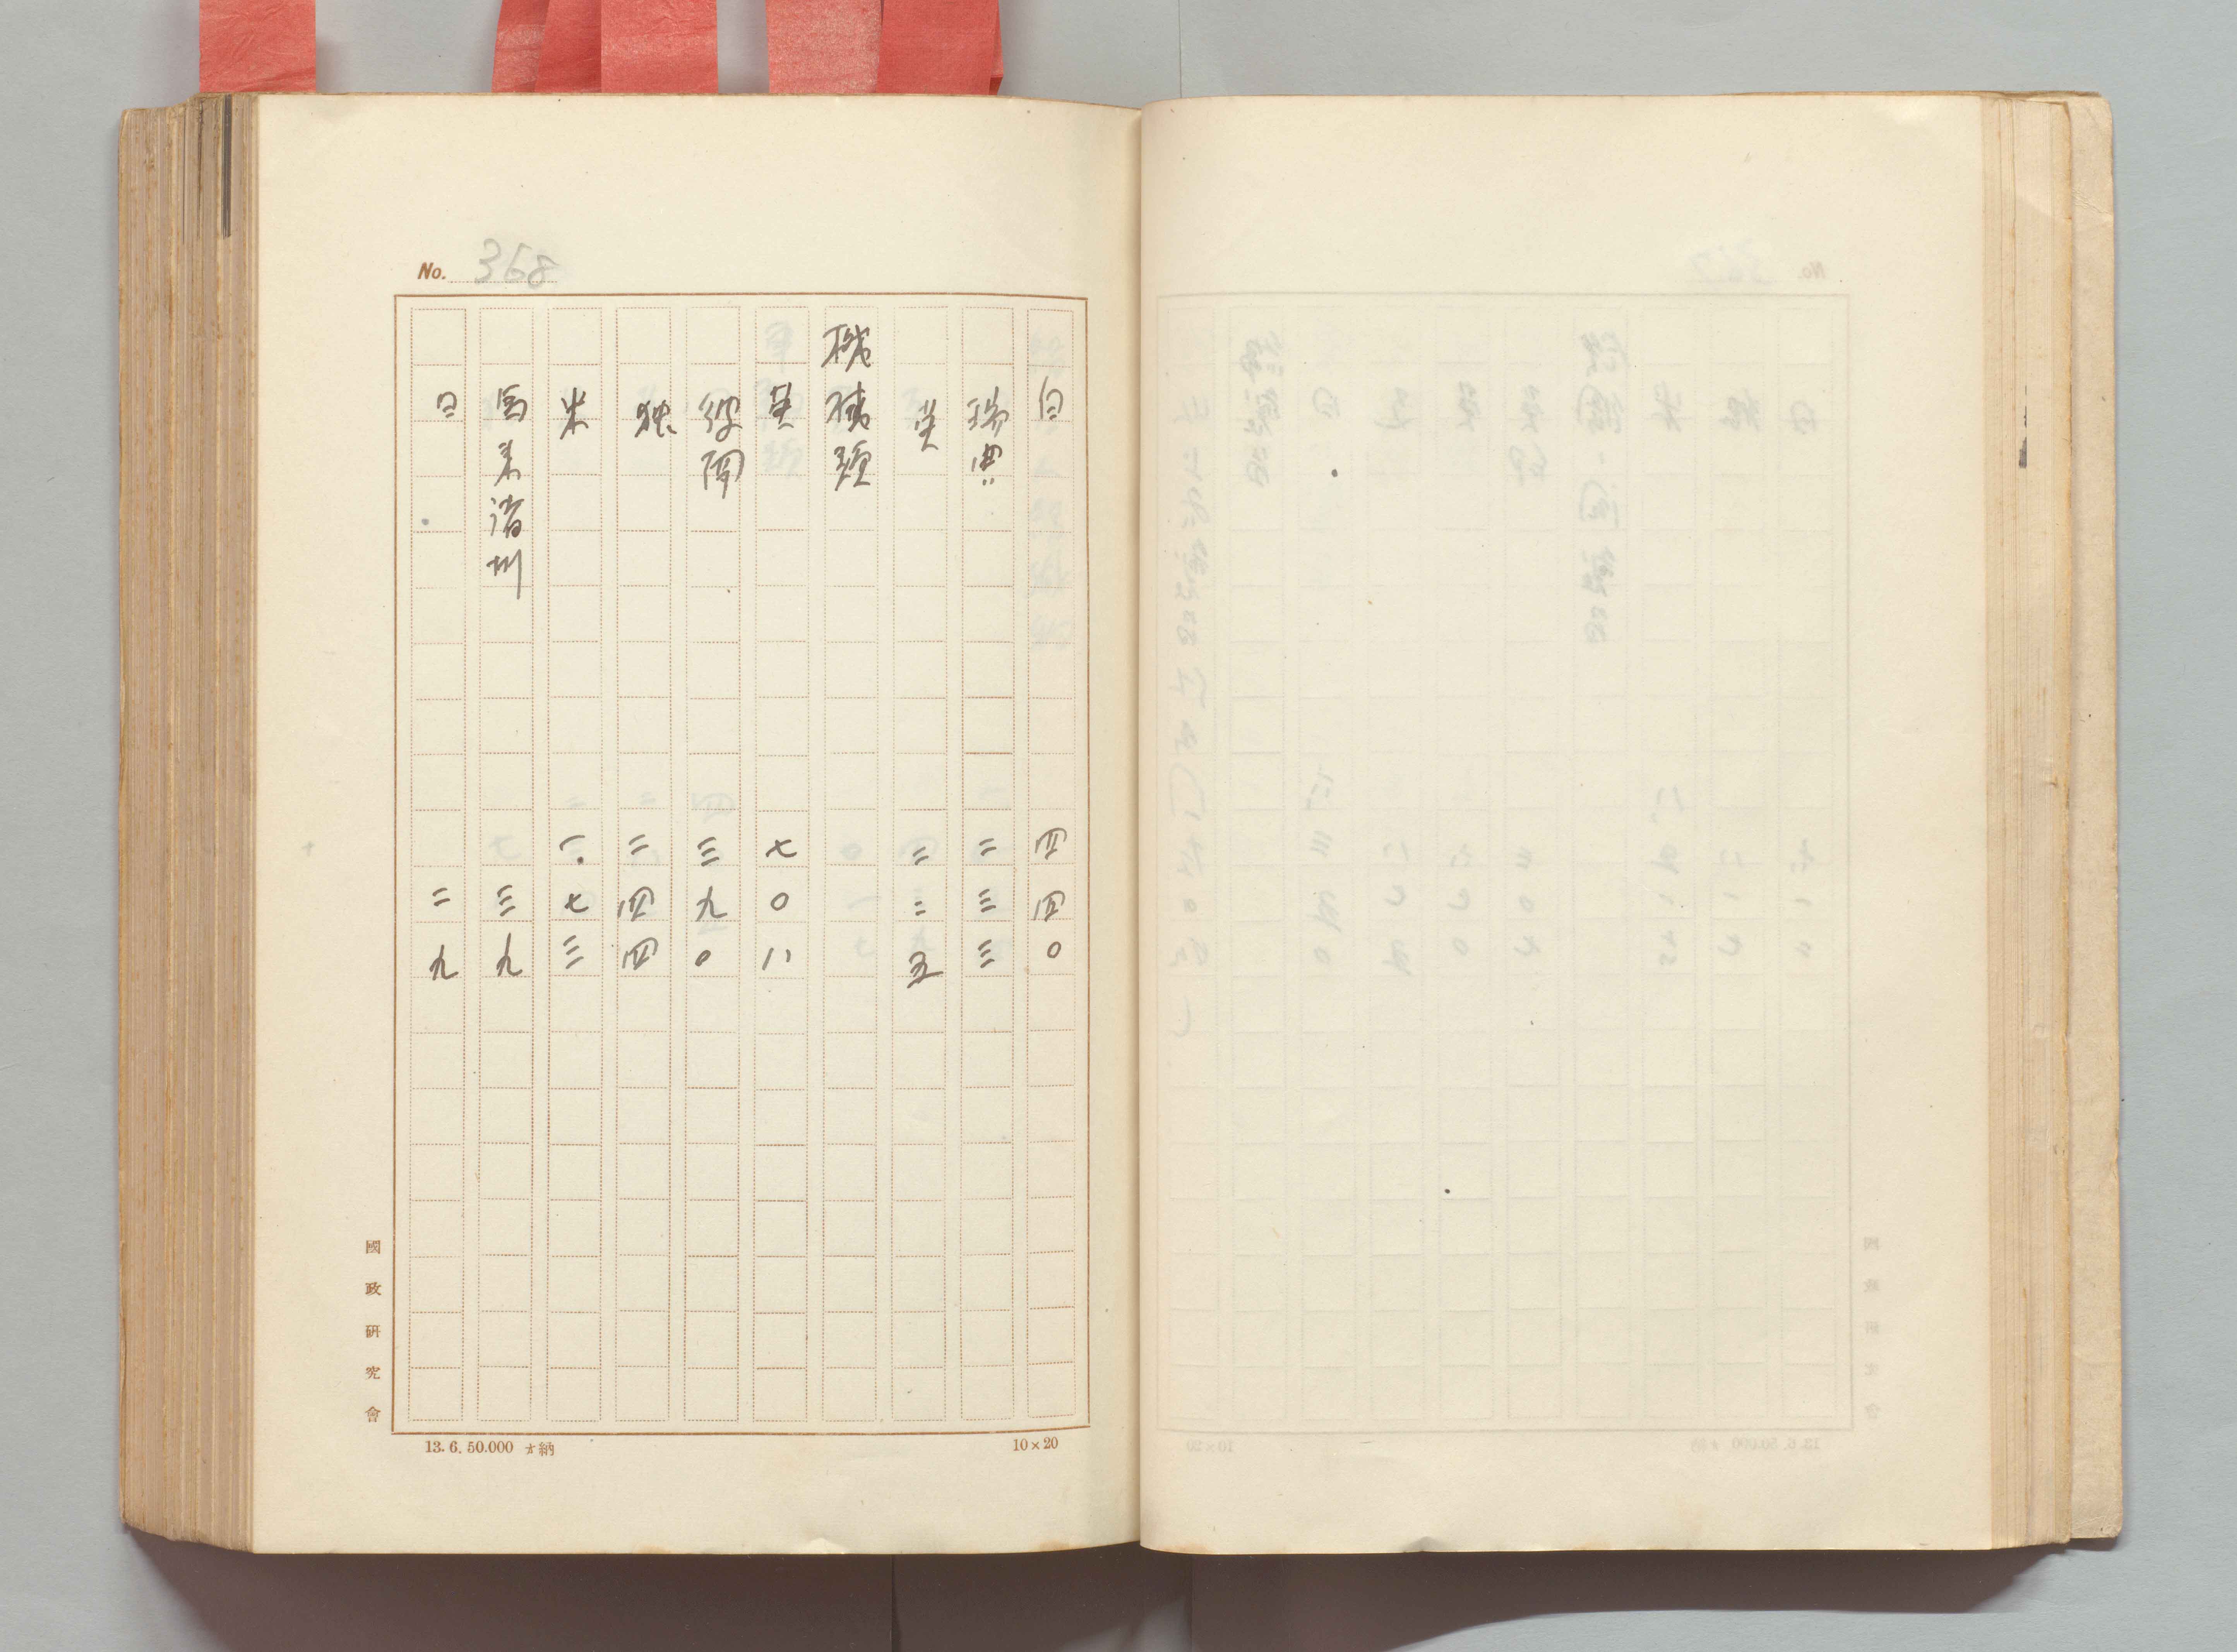 No. 368
白 四四〇
瑞典 二三三
英 二二五
機械類
英 七〇八
彼南 三九〇
独 二四四
米 一七三
馬来諸州 三九
日 二九
國政研究會
13.6.50.000 納
10×20